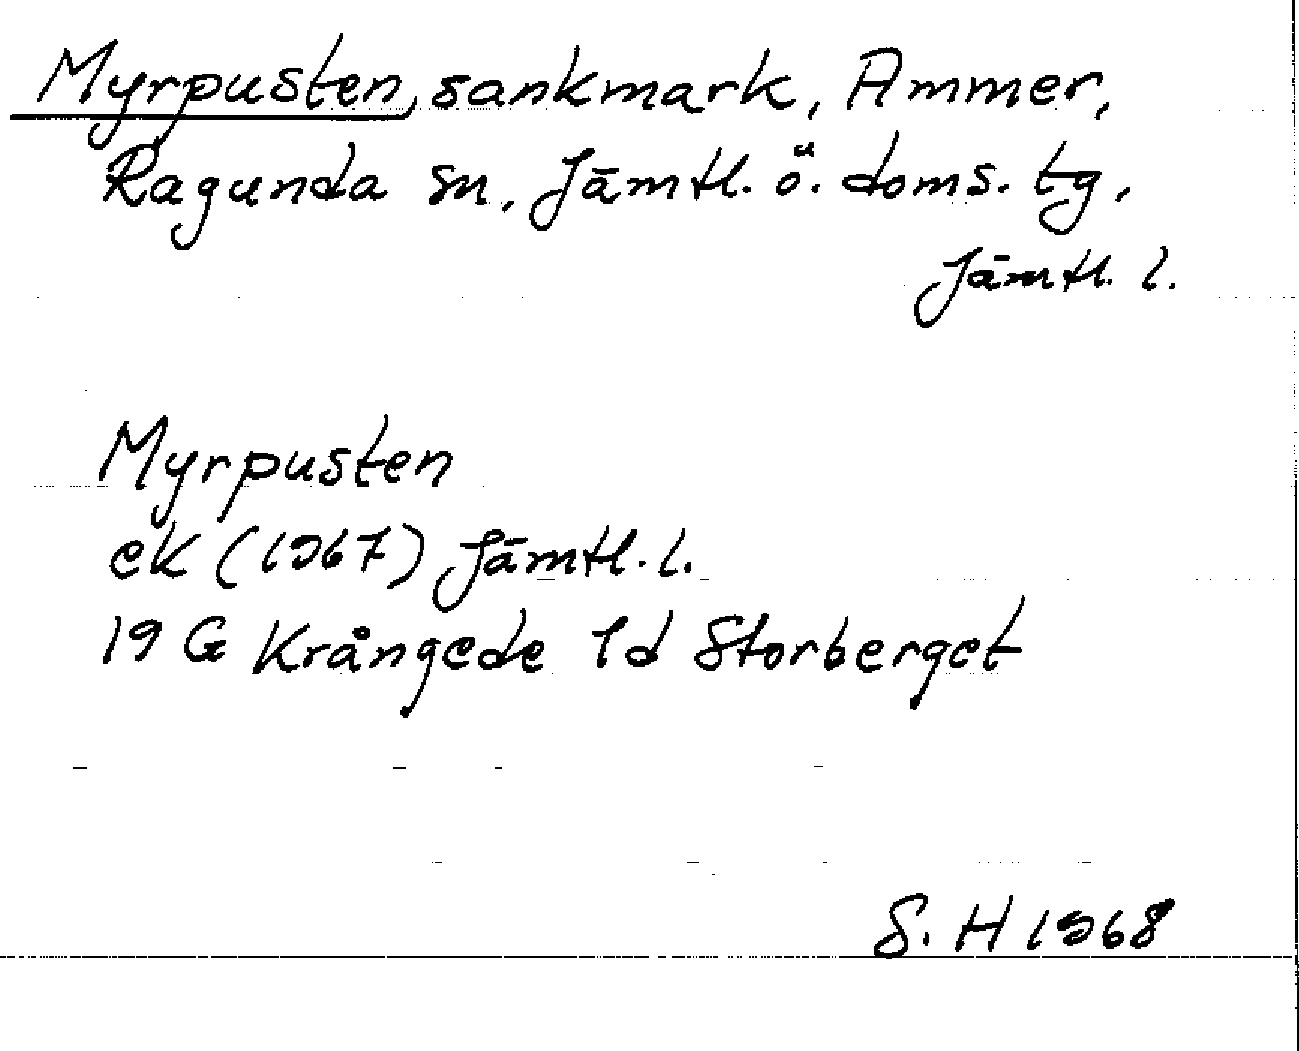 Myrpusten, sankmark, Ammer,
Ragunda sn, Jämtl. ö. doms. tg,
Jämtl. l.
Myrpusten
ek (1967) Jämtl. l.
19 G Krångede 1d Storberget
S. H 1968